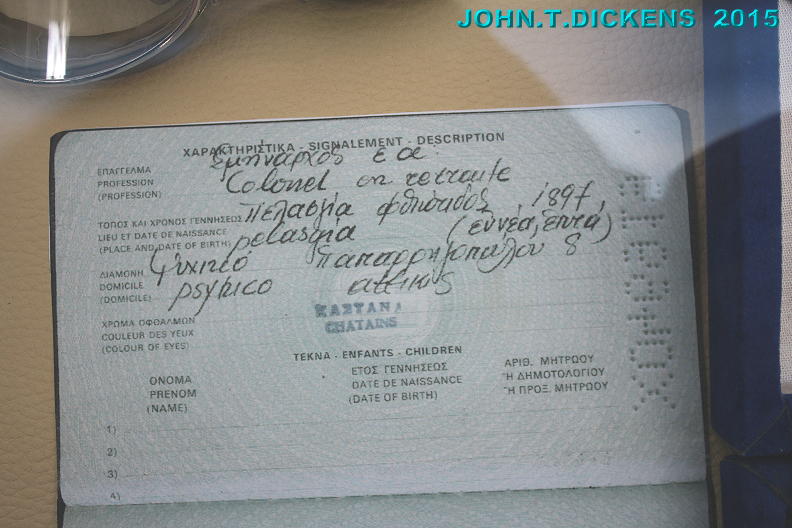 JOHN.T.DICKENS 2015
ΧΑΡΑΚΤΗΡΙΣΤΙΚΑ - SIGNALEMENT - DESCRIPTION
ΕΠΑΓΓΕΛΜΑ
PROFESSION
(PROFESSION)
Σμήναρχος ε.α.
Colonel en retraite
ΤΟΠΟΣ ΚΑΙ ΧΡΟΝΟΣ ΓΕΝΝΗΣΕΩΣ
LIEU ET DATE DE NAISSANCE
(PLACE AND DATE OF BIRTH)
Πελασγία Φθιώτιδος 1897,
pelasgia (εννέα, επτά)
ΔΙΑΜΟΝΗ
DOMICILE
(DOMICILE)
Ψυχικό Παπαρρηγοπούλου 8
psyhico attikis
ΧΡΩΜΑ ΟΦΘΑΛΜΩΝ
COULEUR DES YEUX
(COLOUR OF EYES)
ΚΑΣΤΑΝΑ
CHATAINS
ΤΕΚΝΑ - ENFANTS - CHILDREN
ΟΝΟΜΑ
PRENOM
(NAME)
ΕΤΟΣ ΓΕΝΝΗΣΕΩΣ
DATE DE NAISSANCE
(DATE OF BIRTH)
ΑΡΙΘ. ΜΗΤΡΩΟΥ
Ή ΔΗΜΟΤΟΛΟΓΙΟΥ
Ή ΠΡΟΞ. ΜΗΤΡΩΟΥ
1)
2)
3)
4)